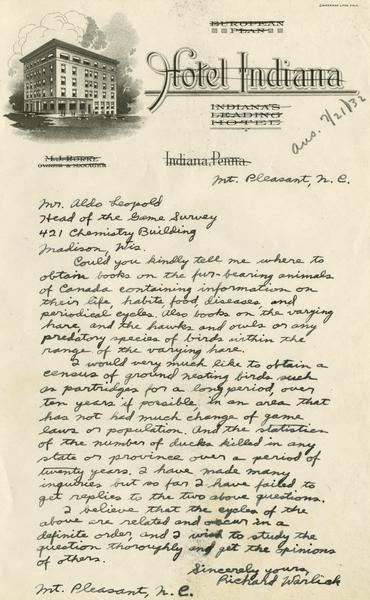 EUROPEAN
PLAN
Hotel Indiana
INDIANA'S
LEADING
HOTEL
ans. 7/21/32
M.J. RORKE
OWNER & MANAGER
Indiana, Penna.
Mt. Pleasant, N. C.
Mr. Aldo Leopold
Head of the Game Survey
421 Chemistry Building
Madison, Wis.
Could you kindly tell me where to
obtain books on the fur-bearing animals
of Canada containing information on
their life, habits, food, diseases, and
periodical cycles. Also books on the varying
hare, and the hawks and owls or any
predatory species of birds within the
range of the varying hare.
I would very much like to obtain a
census of ground nesting birds such
as partridges for a long period, over
ten years if possible, in an area that
has not had much change of game
laws or population. And the statistics
of the number of ducks killed in any
state or province over a period of
twenty years. I have made many
inquiries but so far I have failed to
get replies to the two above questions.
I believe that the cycles of the
above are related and occur in a
definite order, and I wish to study the
question thoroughly and get the opinions
of others.
Sincerely yours,
Richard Warlick
Mt. Pleasant, N. C.